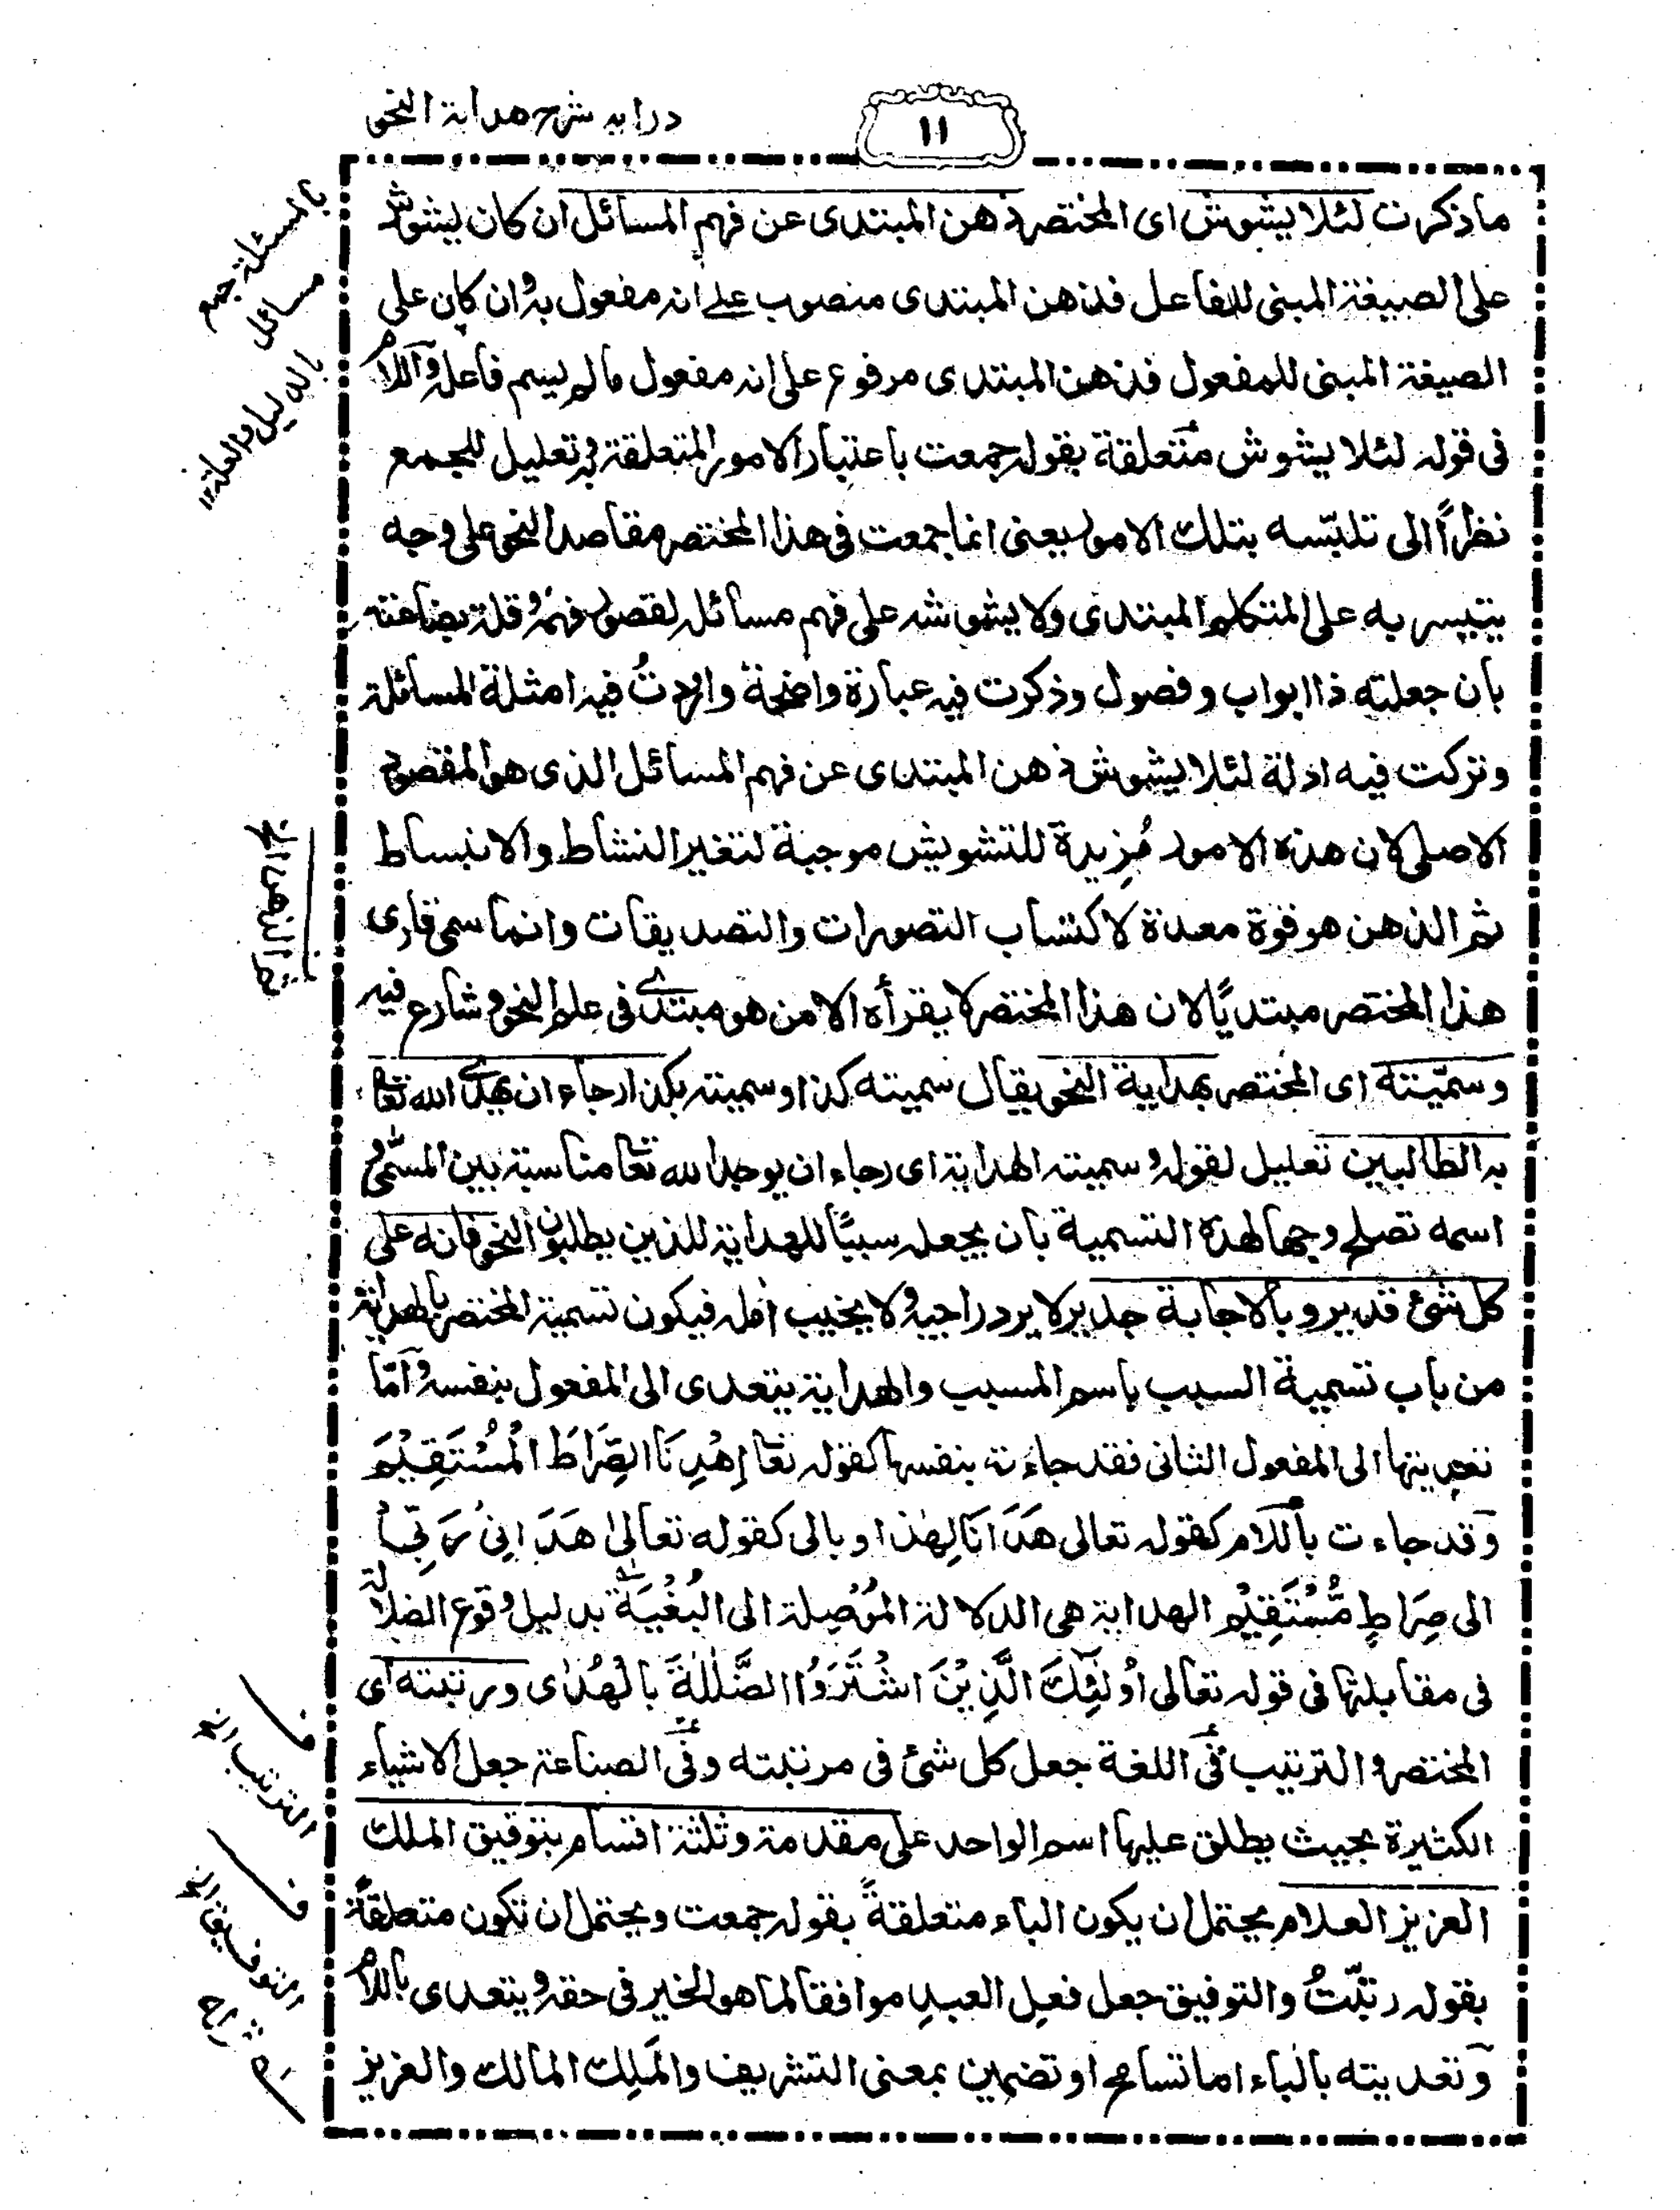 درایہ شرح ھدایۃ النحو
۱۱
ما ذکرت لئلا یشوش ای المختصر ذھن المبتدی عن فہم المسائل ان کان لیشوش
علی الصیغۃ المبنی للفاعل فذھن المبتدی منصوب علے انہ مفعول بہ وان کان علی
الصیغۃ المبنی للمفعول فذھن المبتدی مرفوع علی انہ مفعول مالم یسم فاعلہ واللام
فی قولہ لئلا یشوش متعلقۃ بقولہ جمعت باعتبار الامور المتعلقۃ بہ تعلیل للجمع
نظراً الی تلبّسہ بتلک الامور یعنی انما جمعت فی ھذا المختصر مقاصد النحو علی وجہ
یتیسر بہ علی المتکلم المبتدی ولا یشوشہ علی فہم مسائلہ لقصور فہمہ وقلۃ بضاعتہ
بان جعلتہ ذا ابواب وفصول وذکرت فیہ عبارۃ واضحۃ واوردتُ فیہ امثلۃ المسائلۃ
وترکت فیہ ادلۃ لئلا یشوش ذھن المبتدی عن فہم المسائل الذی ھو المقصود
الاصلی لان ھذہ الامور مُزِیدۃ للتشویش موجبۃ لتغیر النشاط والانبساط
ثم الذھن ھو قوۃ معدۃ لاکتساب التصورات والتصدیقات وانما سمی قاری
ھذا المختصر مبتدیًا لان ھذا المختصر لا یقرأہ الا من ھو مبتدی فی علم النحو و شارع فیہ
وسمّیتہ ای المختصر بھدایۃ النحو یقال سمیتہ کذا وسمیتہ بکذا رجاء ان یھدی اللہ تعا
بہ الطالبین تعلیل لقولہ وسمیتہ الھدایۃ ای رجاء ان یوجد اللہ تعا مناسبۃ بین المسمّٰی و
اسمہ تصلح وجہا لھذہ التسمیۃ بان یجعلہ سببًا للھدایۃ للذین یطلبون النحو فانہ علی
کل شئ قدیر وبالاجابۃ جدیر لا یرد راجیہ ولا یخیب اٰملہ فیکون تسمیۃ المختصر بالھدایۃ
من باب تسمیۃ السبب باسم المسبب والھدایۃ یتعدی الی المفعول بنفسہ وامّا
تعدیتہا الی المفعول الثانی فقد جاءت بنفسہا کقولہ تعا اِھْدِنَا الصِّرَاطَ الْمُسْتَقِیْمَ
وقد جاءت باللام کقولہ تعالی ھَدَانَا لِھٰذا او بالی کقولہ تعالیٰ ھَدَانِیْ رَبِّیْ
الی صِرَاطٍ مُّسْتَقِیْمٍ الھدایۃ ھی الدلالۃ الموْصِلۃ الی البُغْیَۃِ بدلیل وقوع الضلالۃ
فی مقابلتہا فی قولہ تعالی اُولٰئِکَ الَّذِیْنَ اشْتَرَوُا الضَّلٰلَۃَ بِالْھُدٰی ورتبتہ ای
المختصر والترتیب فی اللغۃ جعل کل شئ فی مرتبتہ وفی الصناعۃ جعل الاشیاء
الکثیرۃ بحیث یطلق علیہا اسم الواحد علی مقدمۃ وثلثۃ اقسام بتوفیق الملک
العزیز العلام یحتمل ان یکون الباء متعلقۃً بقولہ جمعت ویحتمل ان تکون متعلقۃً
بقولہ رتبّتُ والتوفیق جعل فعل العبد موافقا لما ھو الخیر فی حقہ ویتعدی باللام
وتعدیتہ بالباء اما تسامح او تضمین بمعنی التشریف والمَلِک المالک والعزیز
المسئلۃ جمع
مسائل
الدلیل والعلۃ ۱۲
الذھن الخ
الترتیب الخ
التوفیق الخ